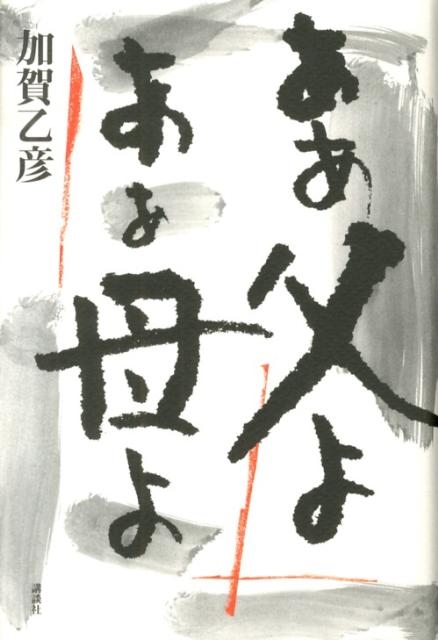 ああ父よ
ああ母よ
加賀乙彦
講談社